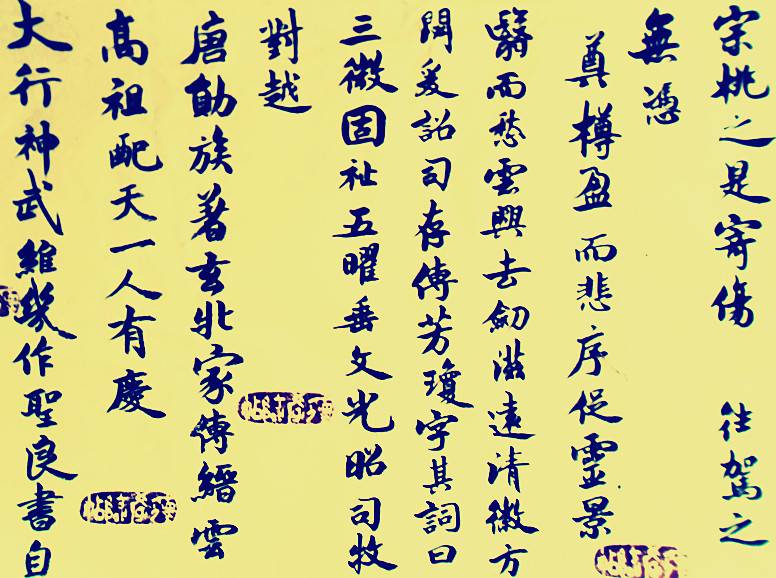 宗祧之是寄傷 往駕之
無憑
奠樽盈而悲序促靈景
翳而愁雲興去劒滋遠清徽方
閟爰詔司存傳芳瓊字其詞曰
三徽固祉五曜垂文光昭司牧
對越
唐勛族著玄北家傳縉雲
高祖配天一人有慶
大行神武維幾作聖良書自